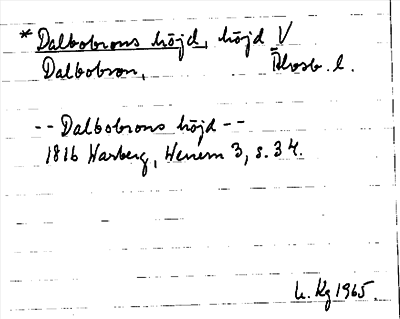 * Dalbobrons höjd, höjd V
Dalbobron, Älvsb. l.
-- Dalbobrons höjd --
1816 Warberg, Wenern 3, s. 34.
U. Kg 1965.